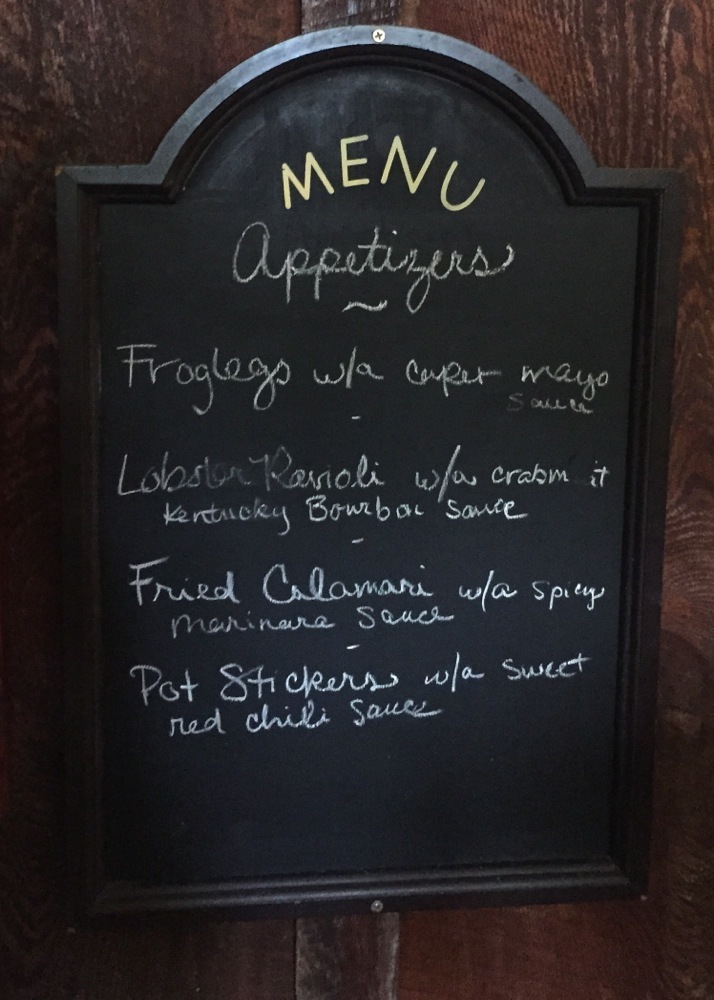 MENU
Appetizers
~
Froglegs w/a caper mayo
sauce
-
Lobster Ravioli w/a crabm it
Kentucky Bourbon sauce
-
Fried Calamari w/a spicy
marinara sauce
-
Pot Stickers w/a sweet
red chili sauce